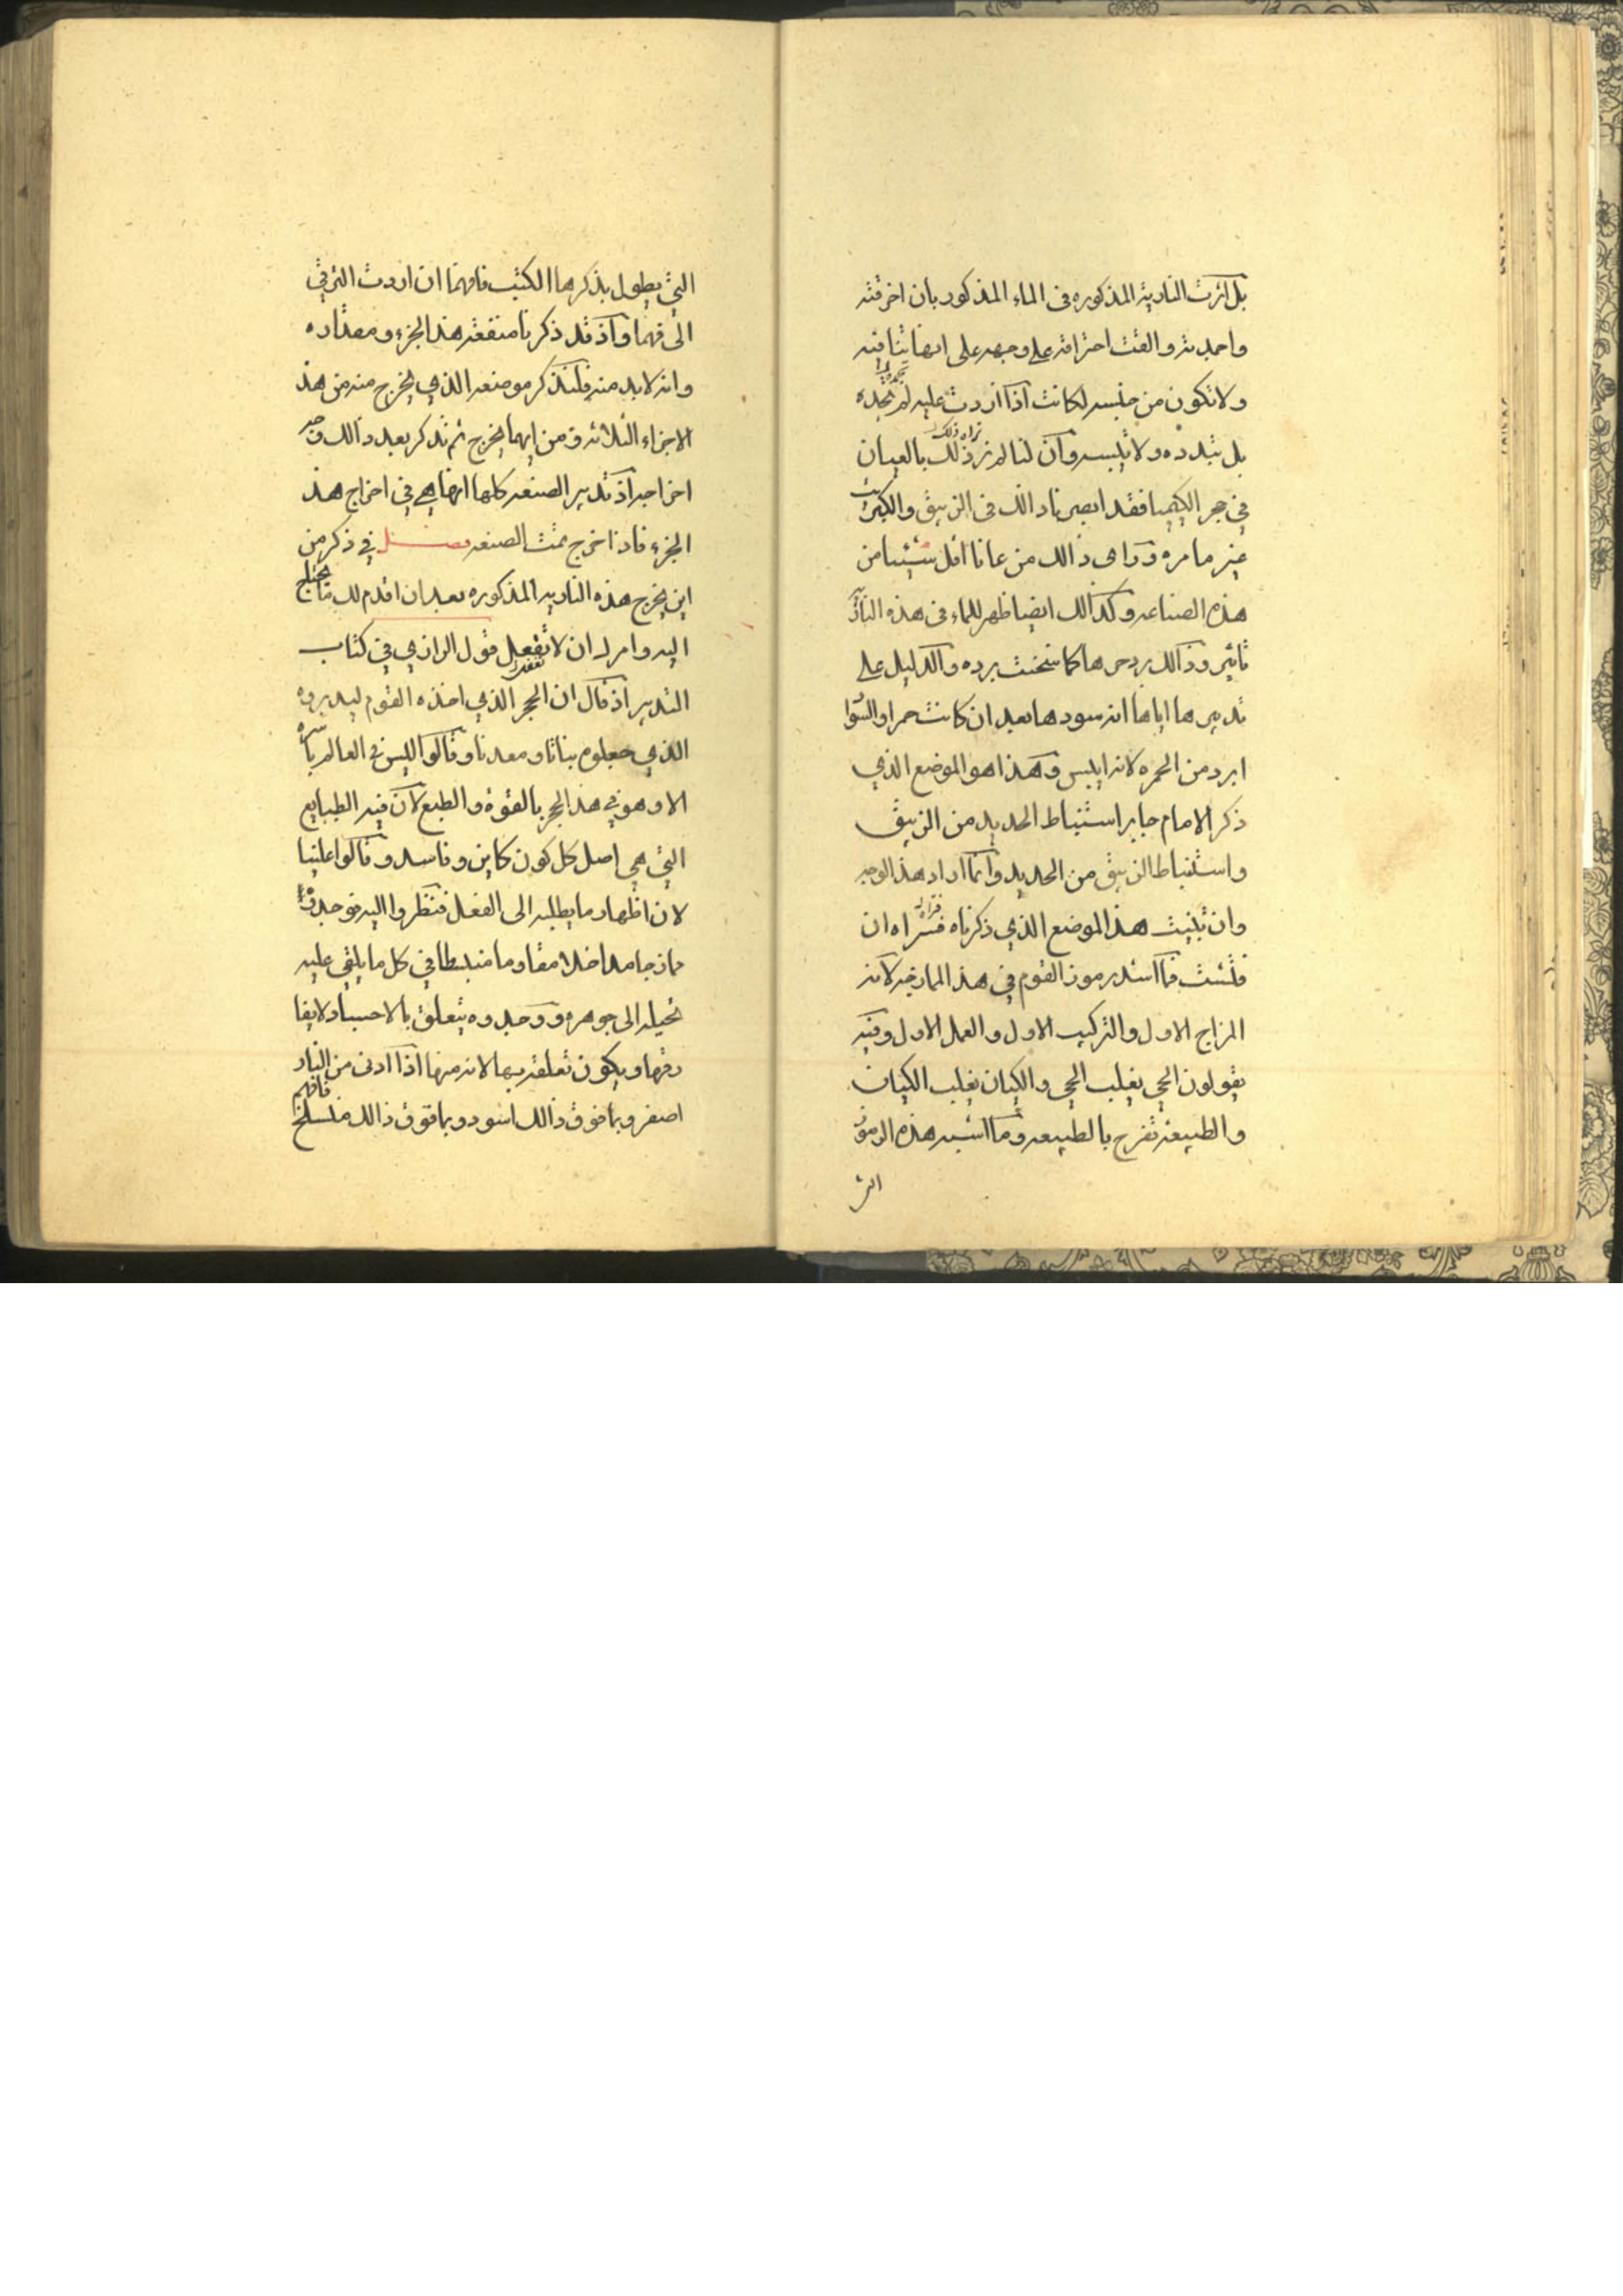 بل اثرت النارية المذكوره فى الماء المذكور بان احرقته
واحمدته والقت احتراقه على وجهه على انها تنافيه
ولا تكون من جنسه لكانت اذا اردت عليه لم تجمده
بل تبدده ولا تيبسه وان لنا لم نر ذلك بالعيان
في حجر الكيميا فقد ابصرنا ذالك فى الزيبق والكبريت
غير ما مره وراى ذالك من عانا اقل شيئا من
هذه الصناعه وكذالك ايضا ظهر للماء فى هذه النارية
تاثير وذالك برد حرها كما سخنت برده والدليل على
تدبيرها اياها انه سودها بعد ان كانت حمرا والسواد
ابرد من الحمره لانه ايبس وهذا هو الموضع الذي
ذكر الامام جابر استنباط الحديد من الزيبق
واستنباط الزيبق من الحديد وانما اراد هذا الوجه
وان هذا الموضع الذي ذكرناه ان
فما اشد رموز القوم في هذا لانه
المزاج الاول والتركيب الاول والعمل الاول وفيه
يقولون الحي يغلب الحي والكيان يغلب الكيان
والطبيعة تفرح بالطبيعه وما اشبه هذه الرموز
التي
التي يطول بذكرها الكتب فافهما ان اردت الترقي
الى فهما واذ قد ذكرنا منفعة هذا الجزء ومقداره
وانه لابد منه فلنذكر موضعه الذي يخرج منه من هذ
الاجزاء الثلاثه ومن ايهما يخرج ثم نذكر بعد ذالك وجه
اخراجه اذ تدبير الصنعه كلها انها هي في اخراج هذ
الجزء فاذا اخرج تمت الصنعه فصل في ذكر من
اين يخرج هذه الناريه المذكوره بعد ان اقدم لك ما تحتاج
اليه وامرك ان لا تغفل قول الرازي في كتاب
التدبير اذ قال ان الحجر الذي اخذه القوم ليدبروه
الذي جعلوه نباتا ومعدنا وقالوا ليس فى العالم باسره
الا وهو في هذا الحجر بالقوة والطبع لان فيه الطبايع
التي هي اصل كل كون كاين وفاسد وقالوا علينا
لان اظهار ما يطلبه الى الفعل فنظروا اليه فوجدوه
منبسطا في كل ما يلقى عليه
تحيله الى جوهره ووجدوه يتعلق بالاجساد ولا يفا
رقها ويكون تعلقه بها لانه منها اذا ادنى من النار
اصفر وبما فوق ذالك اسود وبما فوق ذالك
فافهم